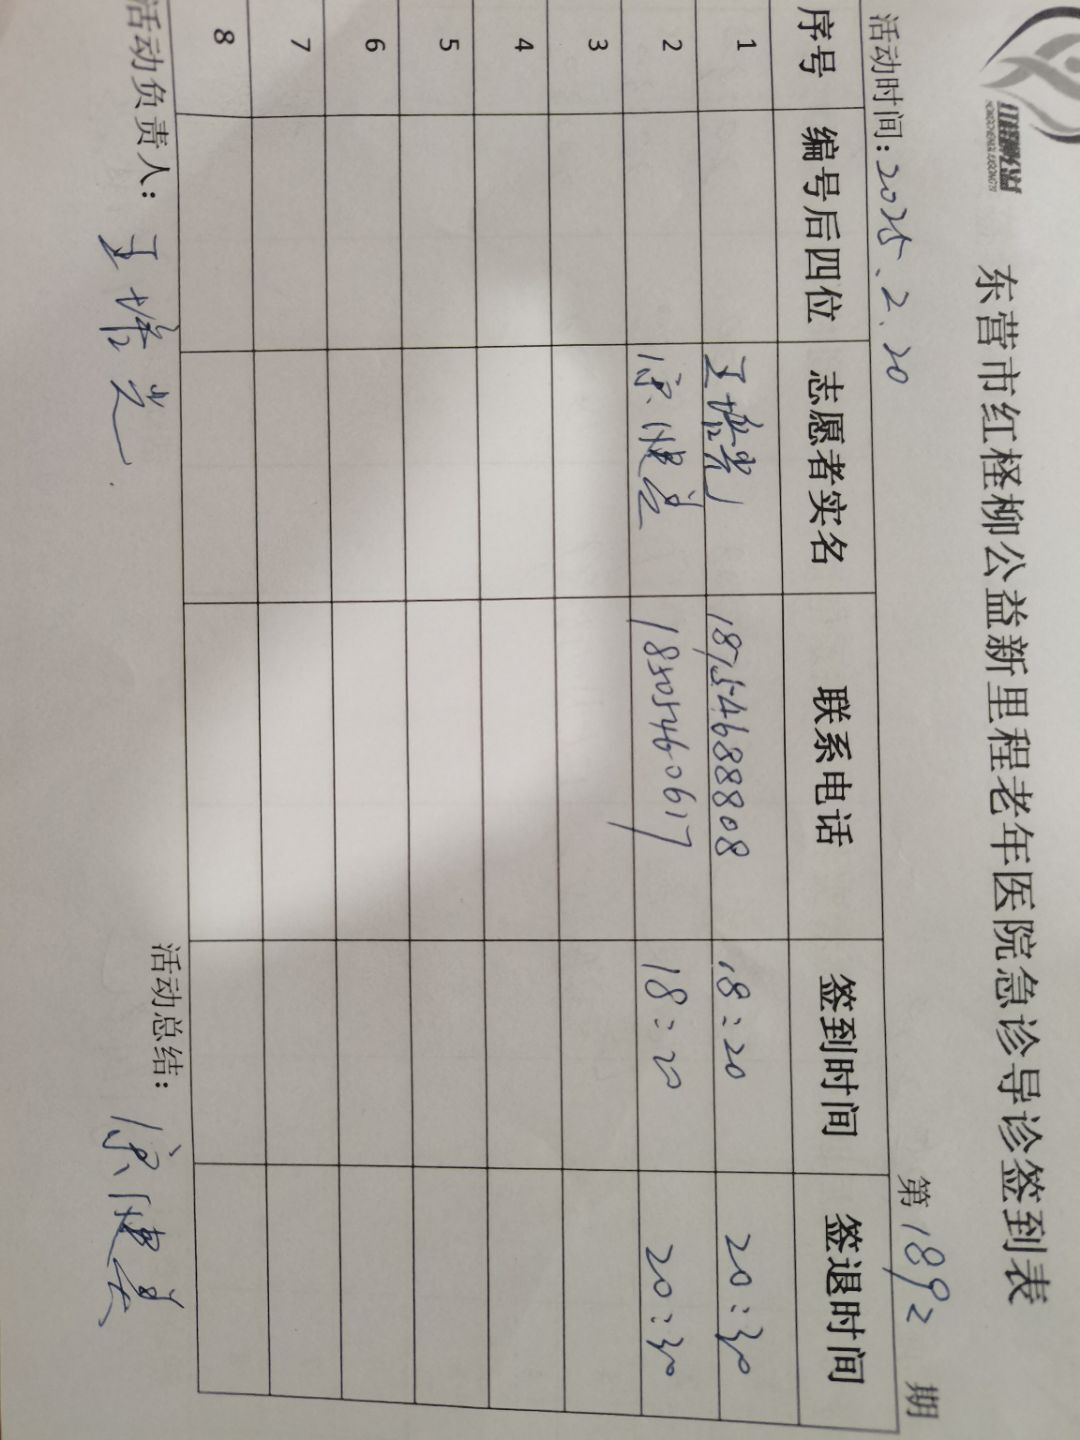 红柽柳公益
东营市红柽柳公益新里程老年医院急诊导诊签到表
活动时间：2025、2、20 第1892期
序号 编号后四位 志愿者实名 联系电话 签到时间 签退时间
1 王培光 18754688808 18：20 20：30
2 健 18505460617 18：20 20：30
3
4
5
6
7
8
活动负责人：王培光 活动总结： 健